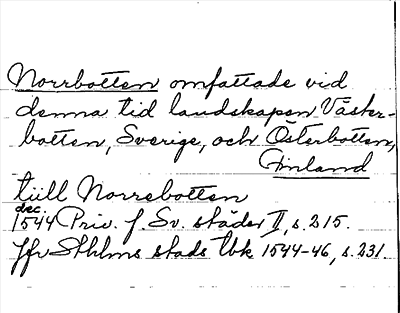 Norrbotten omfattade vid
denna tid landskapen Väster-
botten, Sverige, och Österbotten,
Finland
tiill Norrebotten
dec.
1544 Priv. f. Sv. städer II, s. 215.
Jfr Sthlms stads tbk 1544-46, s. 231